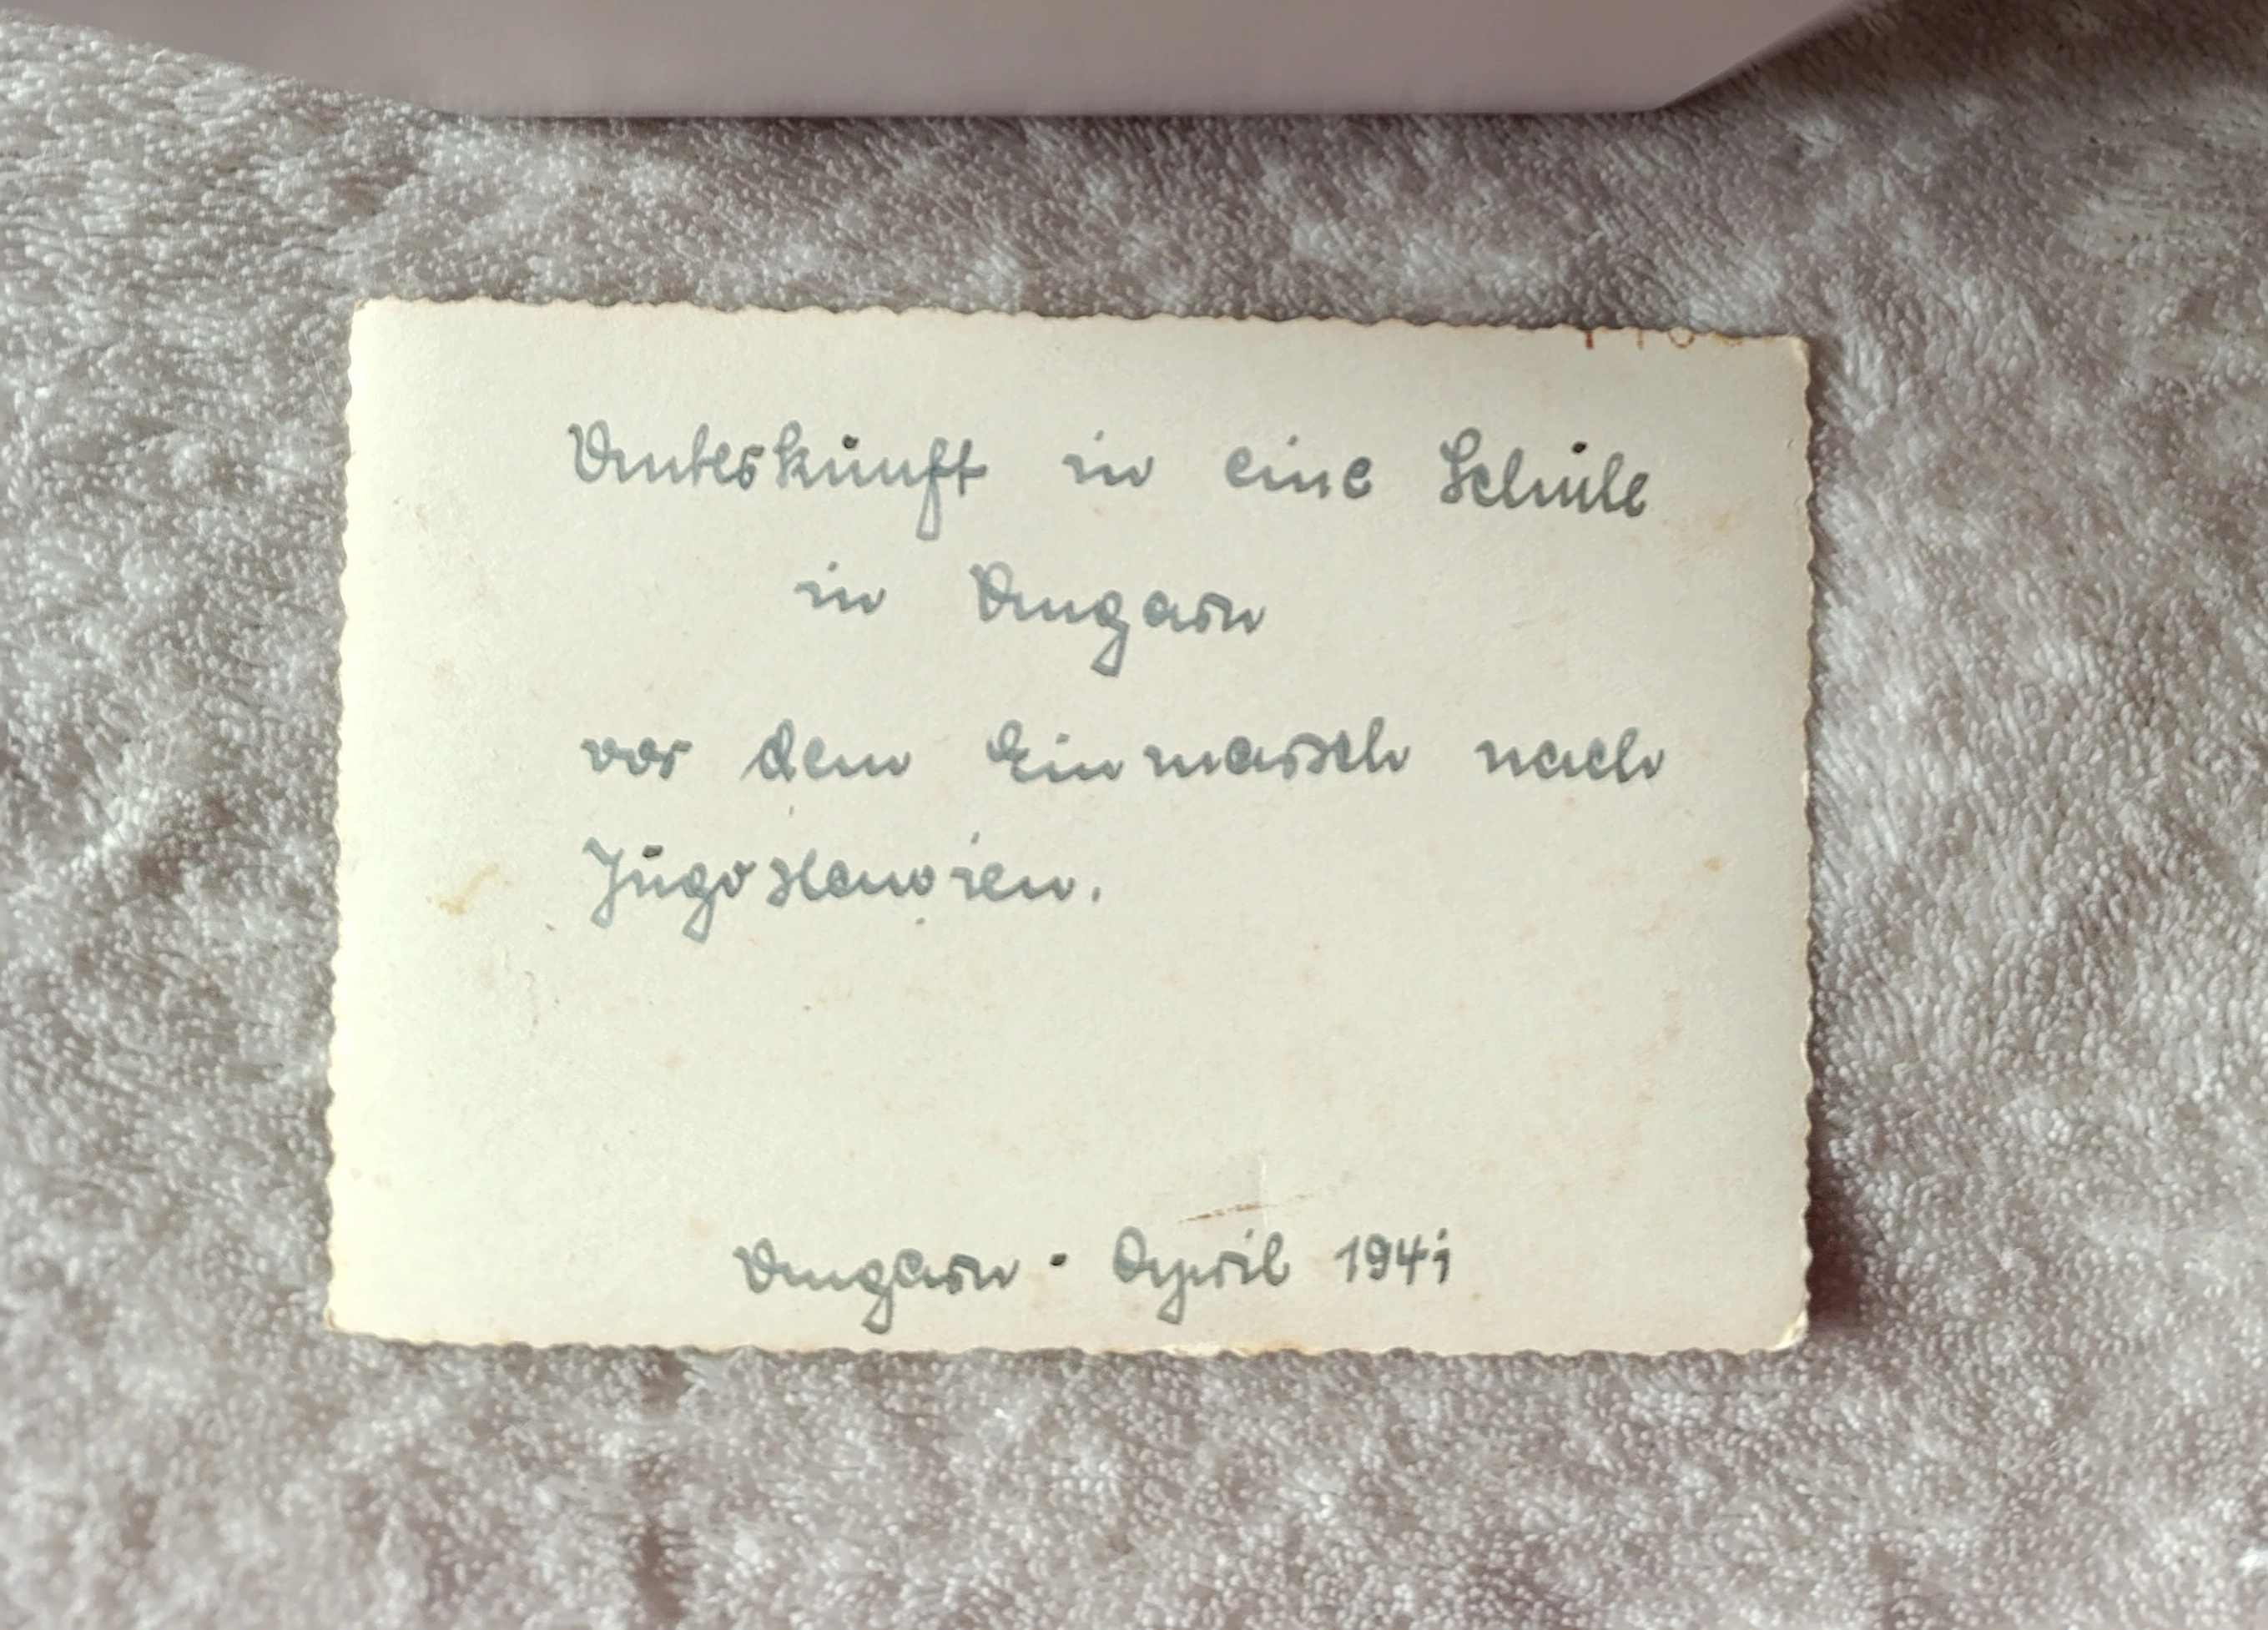 Unterkunft in eine Schule
in Ungarn
vor dem Einmarsch nach
Jugoslawien.
Ungarn · April 1941